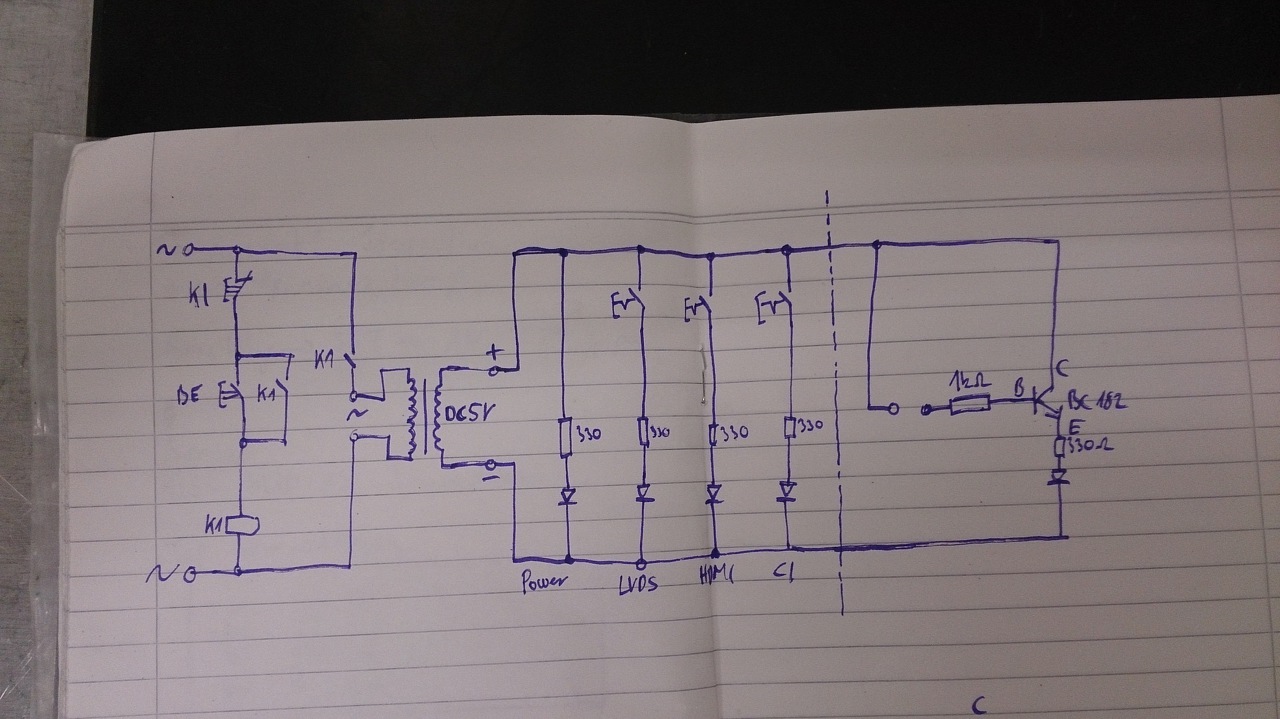 ~
K1
BE
K1
K1
K1
~
~
+
DC5V
−
330
330
330
330
Power
LVDS
HDMI
C1
1kΩ
B
C
BC182
E
330Ω
C